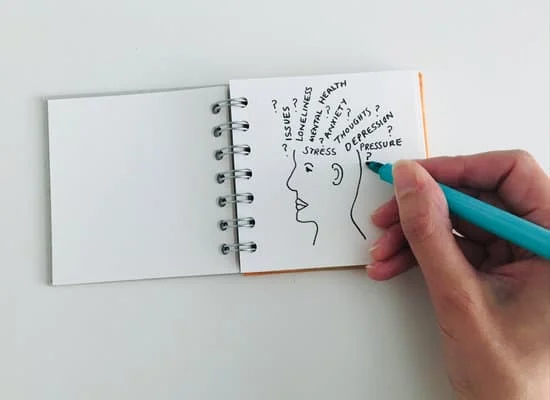 ?
ISSUES
?
?
LONELINESS
MENTAL HEALTH
?
ANXIETY
?
THOUGHTS
?
DEPRESSION
?
PRESSURE
?
STRESS